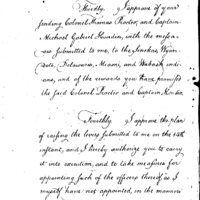 Thirdly I approve of your
sending Colonel Thomas Procter, and Captain
Michael Gabriel Houdin, with the messa-
ges submitted to me, to the Senekas, Wyan-
dots, Delawares, Miami, and Wabash indi-
ans, and of the rewards you have promised
the said Colonel Procter and Captain Houdin
Fourthly I approve the plan
of raising the levies submitted to me in the 15th
instant, and I hereby authorize you to carry
it into execution, and to take measures for
appointing such of the officers thereof as I
myself have not appointed, in the manner